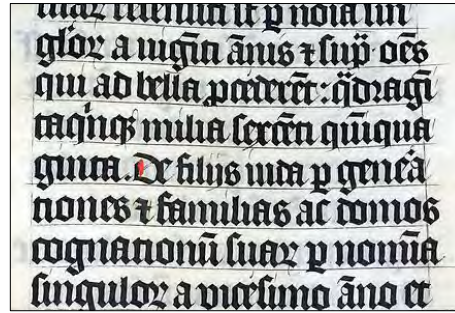 gulor a uigīti ānis ⁊ sup̄ oēs
qui ad bella p̄cederēt: q̄dragī
taq̄nq̄ milia sexcēti quīqua
ginta. De filijs iuda p gen̄ea
tiones ⁊ familias ac domos
cognationū suaꝝ p nomīa
singuloꝝ a vicesimo āno et